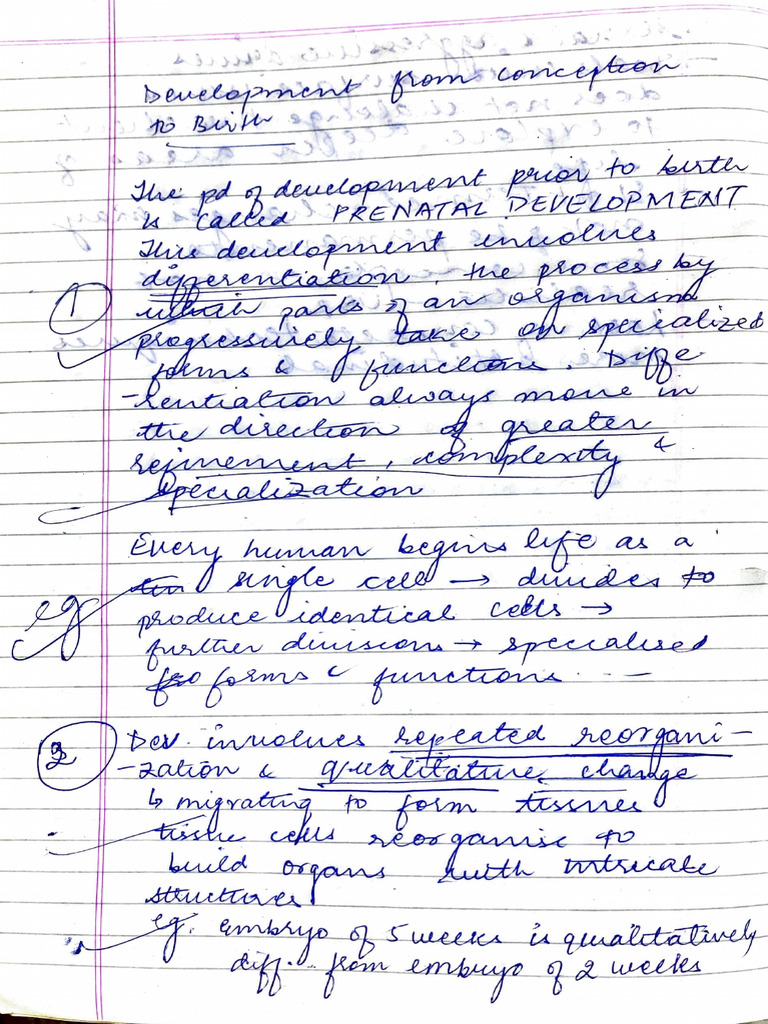 Development from conception
to Birth
The pd of development prior to birth
is called PRENATAL DEVELOPMENT
This development involves
differentiation, the process by
1
which parts of an organism
progressively take on specialized
forms & functions. Diffe
-rentiation always move in
the direction of greater
refinement, complexity &
specialization
Every human begins life as a
eg
single cell → divides to
produce identical cells →
further divisions → specialised
forms & functions. —
2
Dev. involves repeated reorgani-
-zation & qualitative change
↳ migrating to form tissues
tissue cells reorganise to
build organs with intricate
structures
eg. embryo of 5 weeks is qualitatively
diff. from embryo of 2 weeks